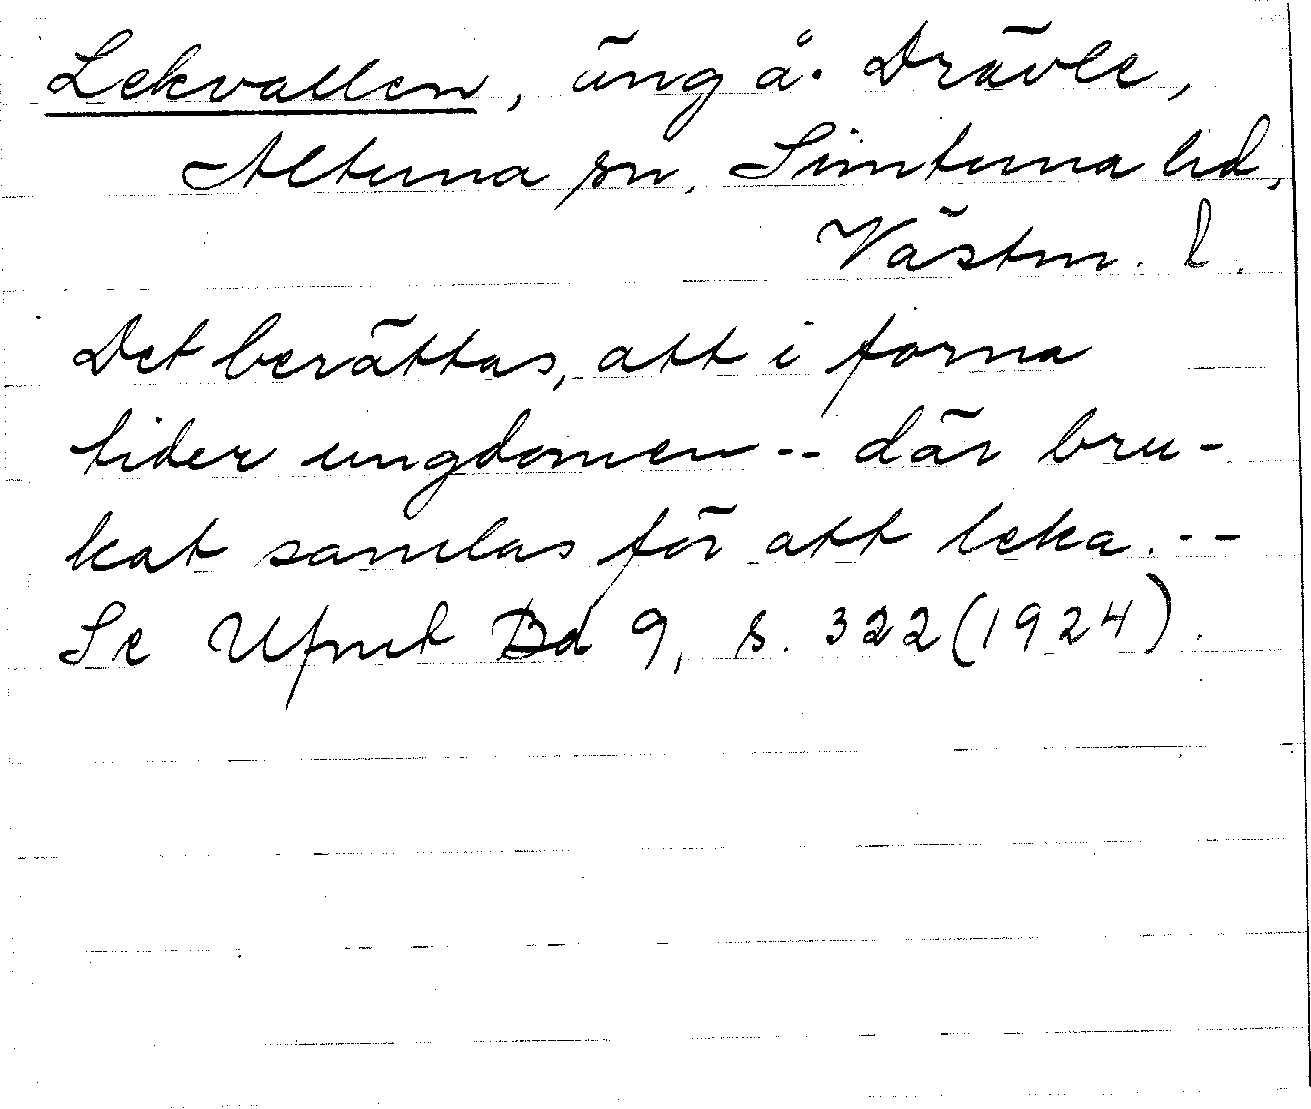 Lekvallen, äng å Drävle,
Altuna sn, Simtuna hd,
Västm. l.
Det berättas, att i forna
tider ungdomen -- där bru-
kat samlas för att leka. --
Se Ufmt Bd 9, s. 322 (1924).